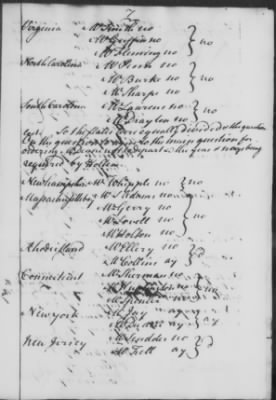 7
Virginia Mr. Smith no } no
Mr. Griffin no
Mr. Fleming no
North Carolina Mr. Penn no } no
Mr. Burke no
Mr. Sharpe no
South Carolina Mr. Laurens no } no
Mr. Drayton no
lost. So the states were equally divided & the question
On the question to agree to the main question for
the yeas & nays being
required by
New hampshire Mr. Whipple no } no
Massachusetts bay Mr. S Adams no
Mr. Gerry no
Mr. Lovell no
Mr. Holten no
Rhode island Mr. Ellery no } d
Mr. Collins ay
Connecticut Mr. Sherman no
Mr. Huntington no
Mr. Spencer no
New york Mr. Jay ay } ay
Mr. Duane ay
New Jersey Mr. Scudder no } d
Mr. Fell ay